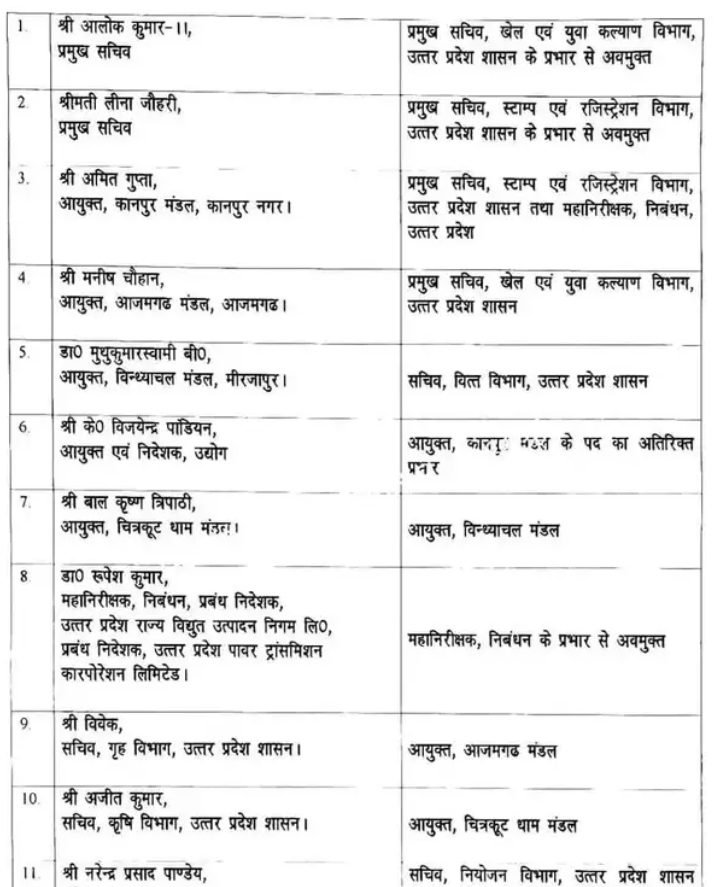 1. श्री आलोक कुमार-।।,
प्रमुख सचिव
प्रमुख सचिव, खेल एवं युवा कल्याण विभाग,
उत्तर प्रदेश शासन के प्रभार से अवमुक्त
2. श्रीमती लीना जौहरी,
प्रमुख सचिव
प्रमुख सचिव, स्टाम्प एवं रजिस्ट्रेशन विभाग,
उत्तर प्रदेश शासन के प्रभार से अवमुक्त
3. श्री अमित गुप्ता,
आयुक्त, कानपुर मंडल, कानपुर नगर।
प्रमुख सचिव, स्टाम्प एवं रजिस्ट्रेशन विभाग,
उत्तर प्रदेश शासन तथा महानिरीक्षक, निबंधन,
उत्तर प्रदेश
4. श्री मनीष चौहान,
आयुक्त, आजमगढ मंडल, आजमगढ।
प्रमुख सचिव, खेल एवं युवा कल्याण विभाग,
उत्तर प्रदेश शासन
5. डा0 मुथुकुमारस्वामी बी0,
आयुक्त, विन्ध्याचल मंडल, मीरजापुर।
सचिव, वित्त विभाग, उत्तर प्रदेश शासन
6. श्री के0 विजयेन्द्र पांडियन,
आयुक्त एवं निदेशक, उद्योग
आयुक्त, कानपुर मंडल के पद का अतिरिक्त
प्रभार
7. श्री बाल कृष्ण त्रिपाठी,
आयुक्त, चित्रकूट धाम मंडल।
आयुक्त, विन्ध्याचल मंडल
8. डा0 रूपेश कुमार,
महानिरीक्षक, निबंधन, प्रबंध निदेशक,
उत्तर प्रदेश राज्य विद्युत उत्पादन निगम लि0,
प्रबंध निदेशक, उत्तर प्रदेश पावर ट्रांसमिशन
कारपोरेशन लिमिटेड।
महानिरीक्षक, निबंधन के प्रभार से अवमुक्त
9. श्री विवेक,
सचिव, गृह विभाग, उत्तर प्रदेश शासन।
आयुक्त, आजमगढ मंडल
10. श्री अजीत कुमार,
सचिव, कृषि विभाग, उत्तर प्रदेश शासन।
आयुक्त, चित्रकूट धाम मंडल
11. श्री नरेन्द्र प्रसाद पाण्डेय,
सचिव, नियोजन विभाग, उत्तर प्रदेश शासन